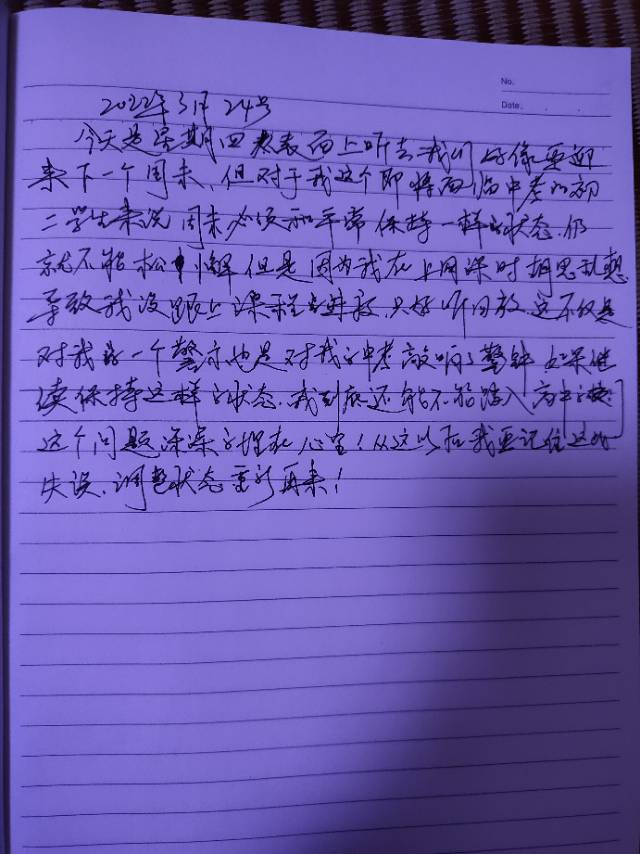 No.
Date.
2022年3月24号
今天是星期四光表面上听去我们好像要迎
来下一个周末、但对于我这个即将面临中考的初
三学生来说周末必须和平常保持一样的状态、仍
就不能松懈但是因为我在上网课时胡思乱想
导致我没跟上课程进教、只好听回放、这不仅是
对我的一个警示也是对我的中考敲响了警钟如果继
续保持这样的状态、我到底还能不能踏入高中的
这个问题深深的埋在心里!从这以后我要记住这次
失误、调整状态重新再来!